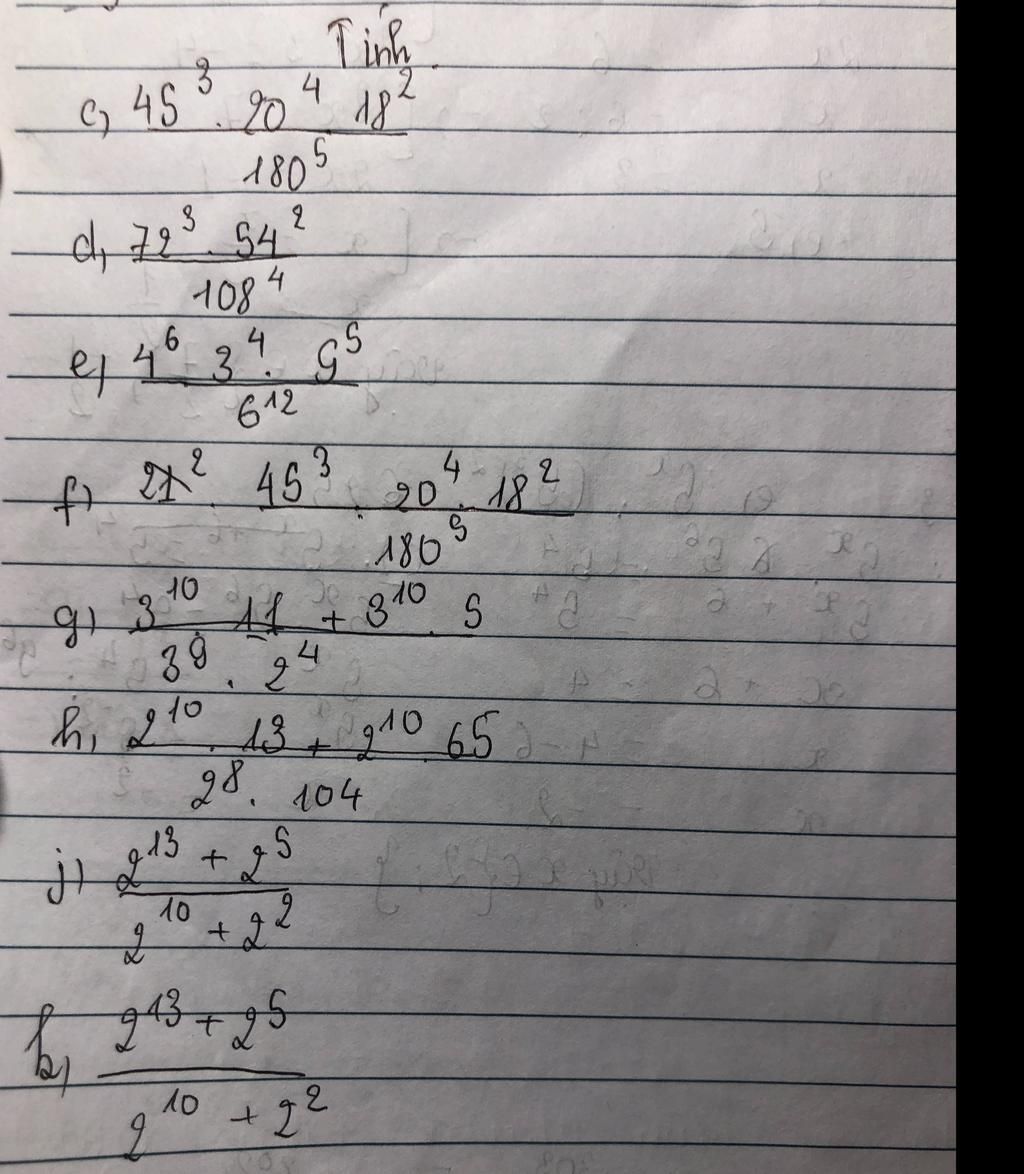 Tính
c, 45³ . 20⁴ 18²
180⁵
d, 72³ . 54²
108⁴
e, 4⁶ 3⁴ . 9⁵
6¹²
f, 45³ . 20⁴ . 18²
180⁵
g, 3¹⁰ 11 + 3¹⁰ . 5
3⁹ . 2⁴
h, 2¹⁰ . 13 + 2¹⁰ 65
2⁸ . 104
j, 2¹³ + 2⁵
2¹⁰ + 2²
k, 2¹³ + 2⁵
2¹⁰ + 2²